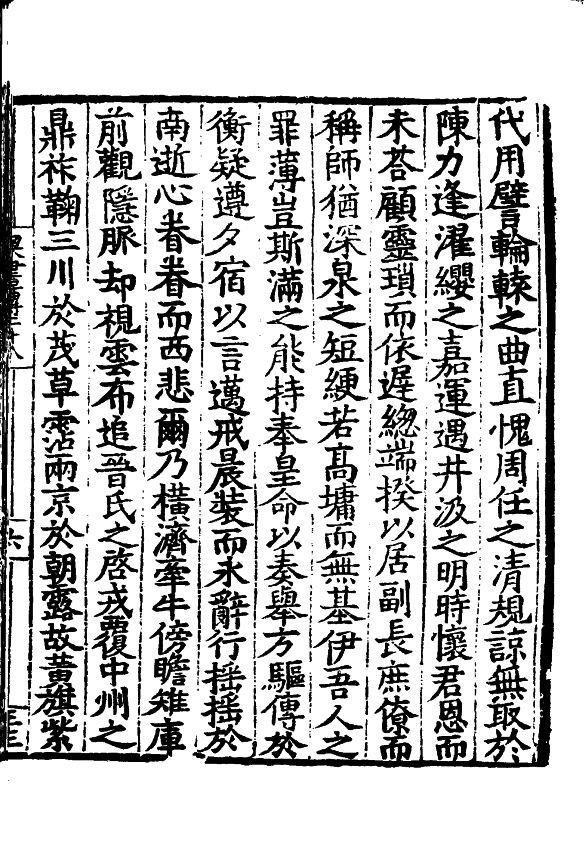 代用譬輪轅之曲直愧周任之清規諒無取於
陳力逢濯纓之嘉運遇井汲之明時懷君恩而
未荅顧靈瑣而依遲緫端揆以居副長庶僚而
稱師猶深泉之短綆若髙墉而無基伊吾人之
罪薄豈斯滿之能持奉皇命以奏舉方驅傳於
衡疑遵夕宿以言邁戒晨裝而永辭行揺揺於
南逝心眷眷而西悲爾乃橫濟牽牛傍瞻雉庫
前觀隱脈却視雲布追晉氏之啓戎覆中州之
鼎祚鞠三川於茂草霑兩京於朝露故黄旗紫